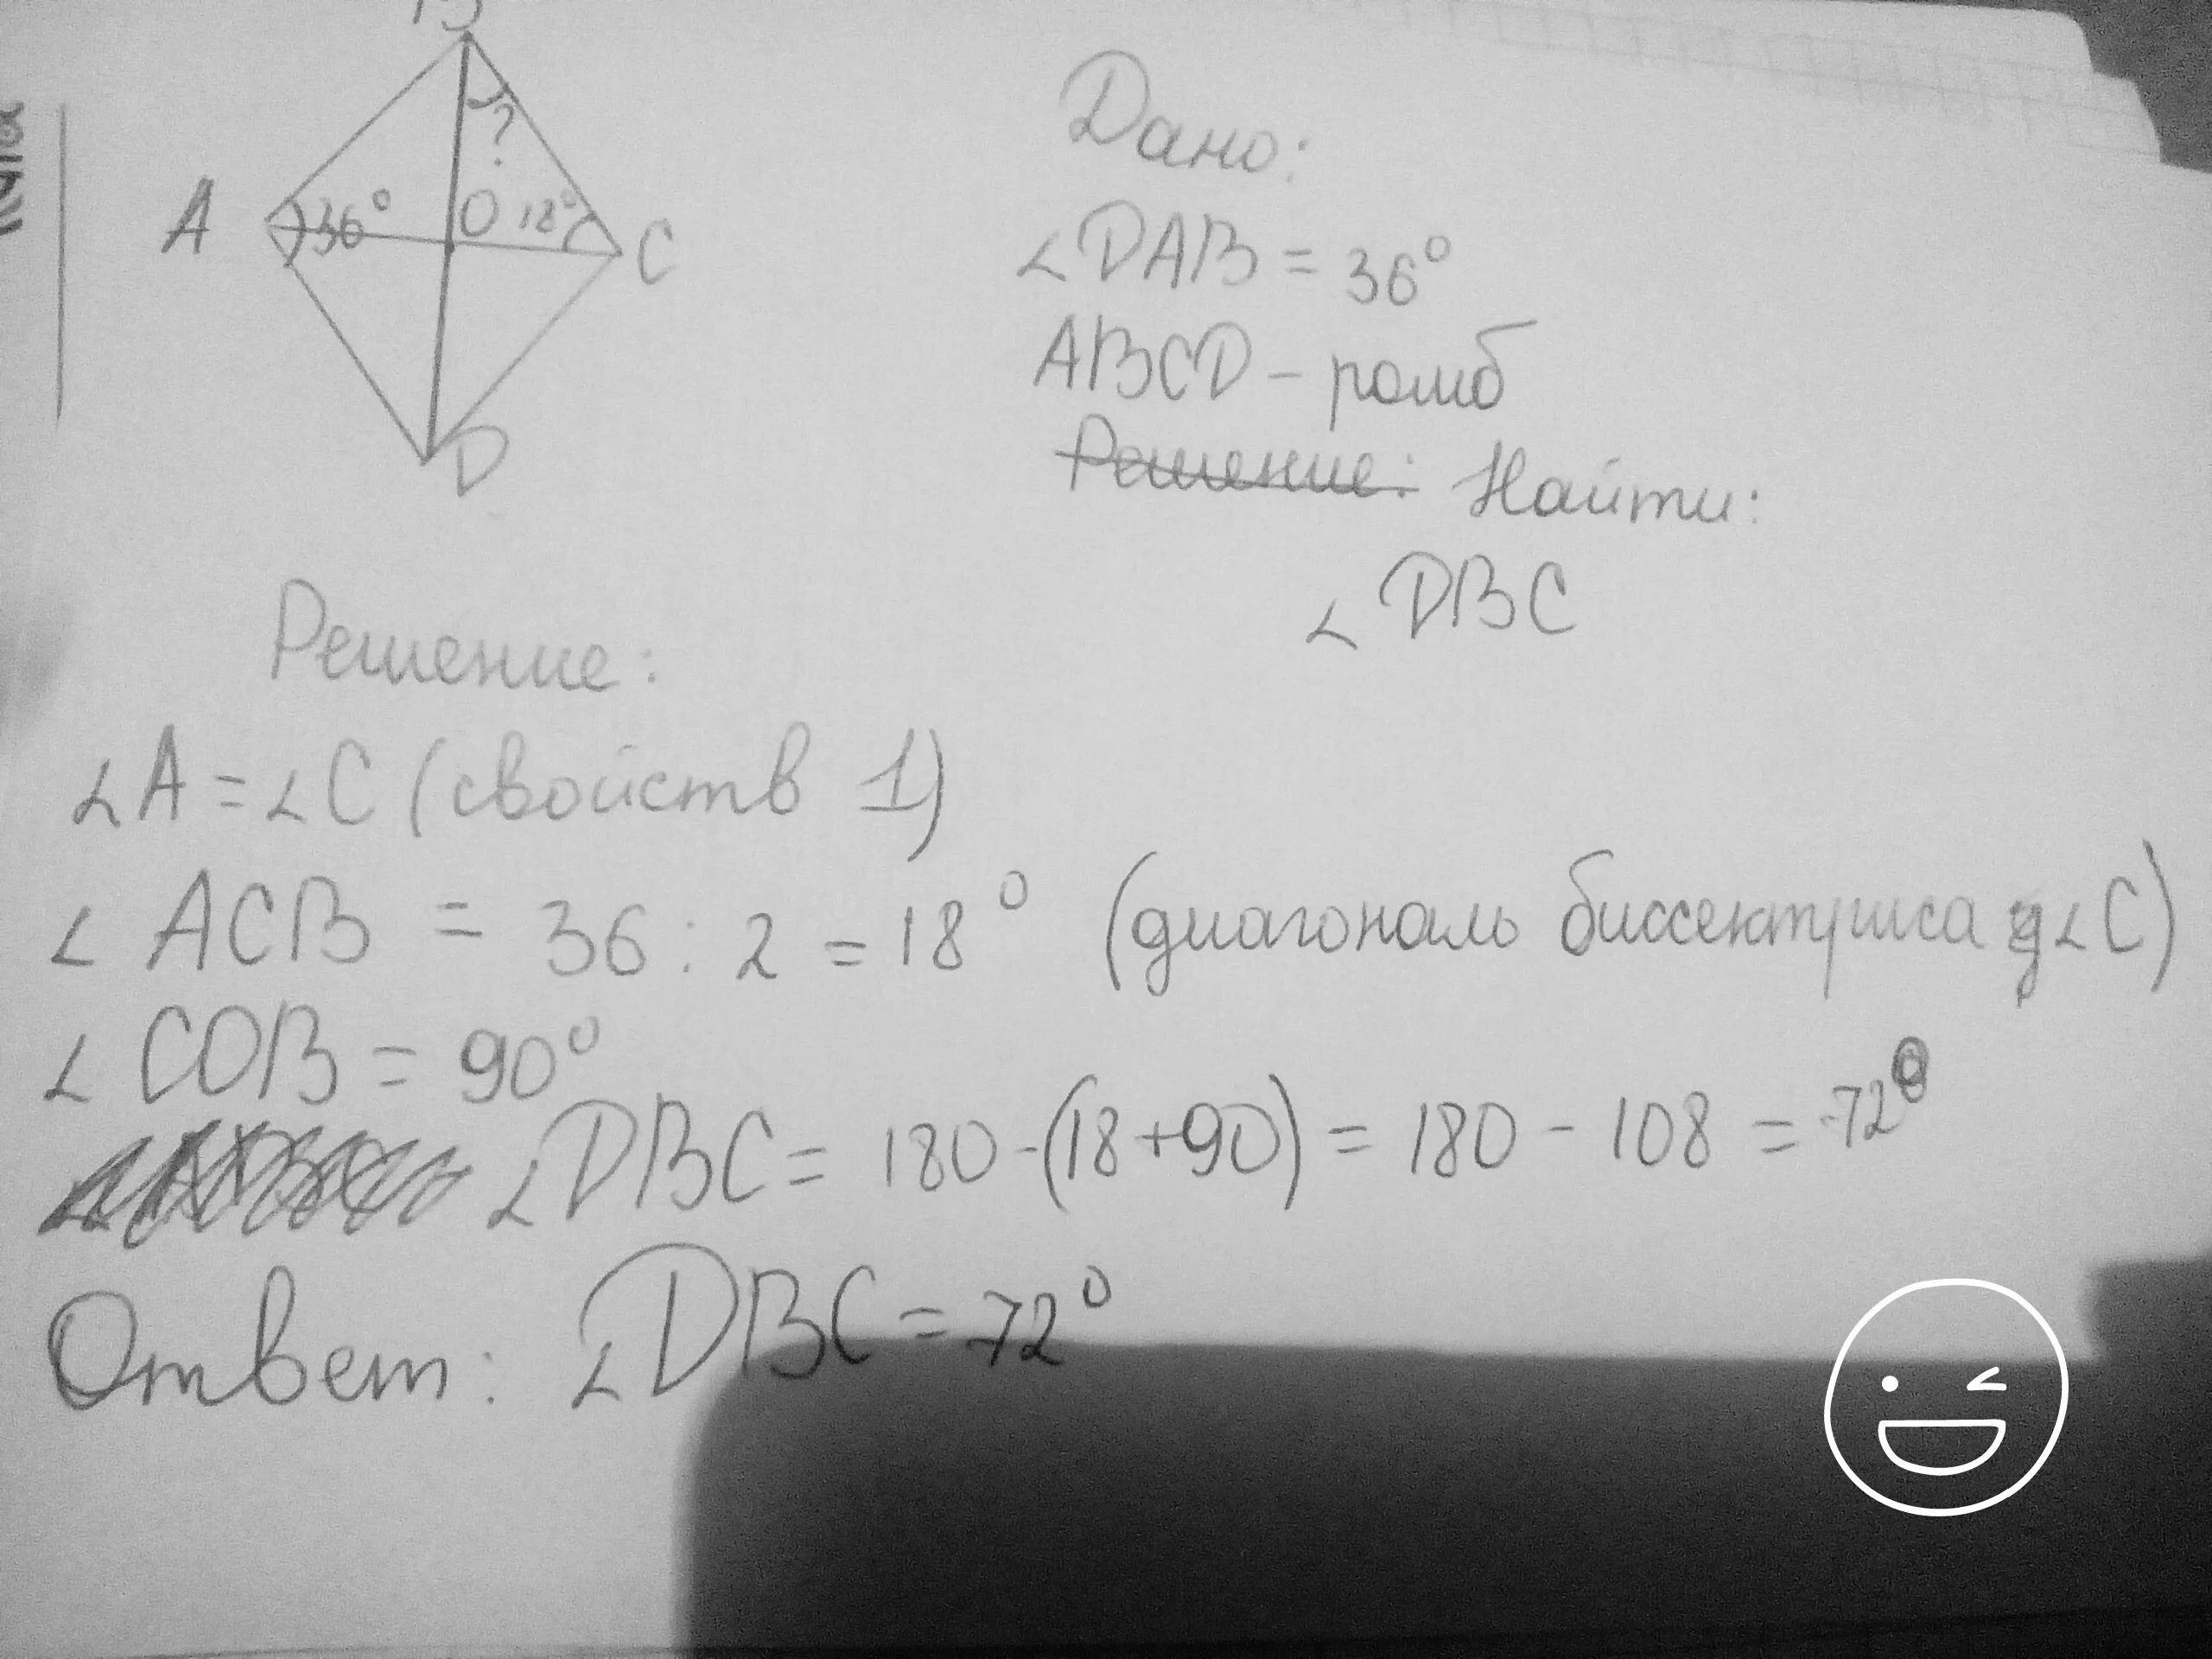 B
?
A 36° O 18° C
D
Дано:
∠DAB = 36°
ABCD – ромб
Решение: Найти:
∠DBC
Решение:
∠A = ∠C (свойств 1)
∠ACB = 36 : 2 = 18° (диагональ биссектриса ∠C)
∠COB = 90°
∠DBC = 180 - (18 + 90) = 180 - 108 = 72°
Ответ: ∠DBC = 72°